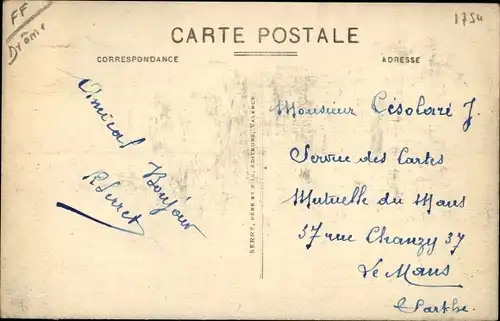 FF
Drôme
1754
CARTE POSTALE
CORRESPONDANCE
ADRESSE
Amical
Bonjour
R Serret
SERRE, PÈRE ET FILS, ÉDITEURS, VALENCE
Monsieur Césolaré J.
Service des Cartes
Mutuelle du Mans
37 rue Chanzy 37
Le Mans
Sarthe